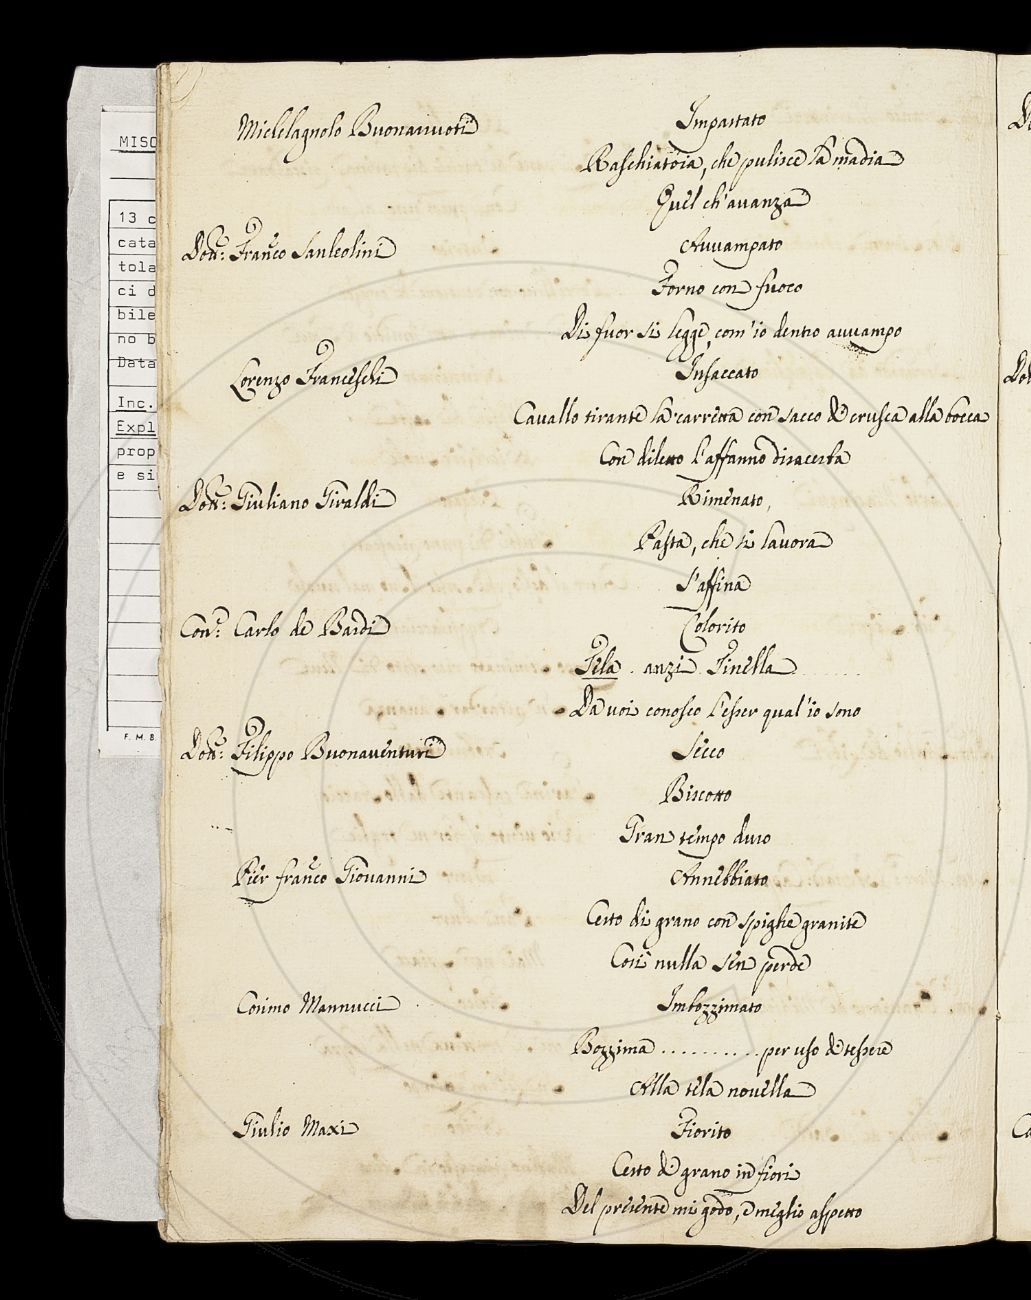 MISC
13 c
cata
tola
ci d
bile
no b
Data
Inc.
Expl
prop
e si
F. M. B.
Michelagnolo Buonarruoti
Impastato
Raschiatoia, che pulisce la madia
Quel ch'avanza
Dott: Franco Sanleolini
Avvampato
Forno con fuoco
Di fuor si legge, com'io dentro avvampo
Lorenzo Franceschi
Insaccato
Cavallo tirante la carretta con sacco di crusca alla bocca
Con diletto l'affanno disacerba
Dott: Giuliano Giraldi
Rimenato,
Pasta, che si lavora
S'affina
Con: Carlo de Bardi
Colorito
Tela . anzi Tinella
Da voi conosco l'esser qual'io sono
Dott: Filippo Buonaventuri
Secco
Biscotto
Gran tempo duro
Pier franco Giovanni
Annebbiato
Cesto di grano con spighe granite
Così nulla sen perde
Cosimo Mannucci
Imbozzimato
Bozzima .......... per uso di tessere
Alla tela novella
Giulio Maxi
Fiorito
Cesto di grano in fiori
Del presente mi godo, e meglio aspetto